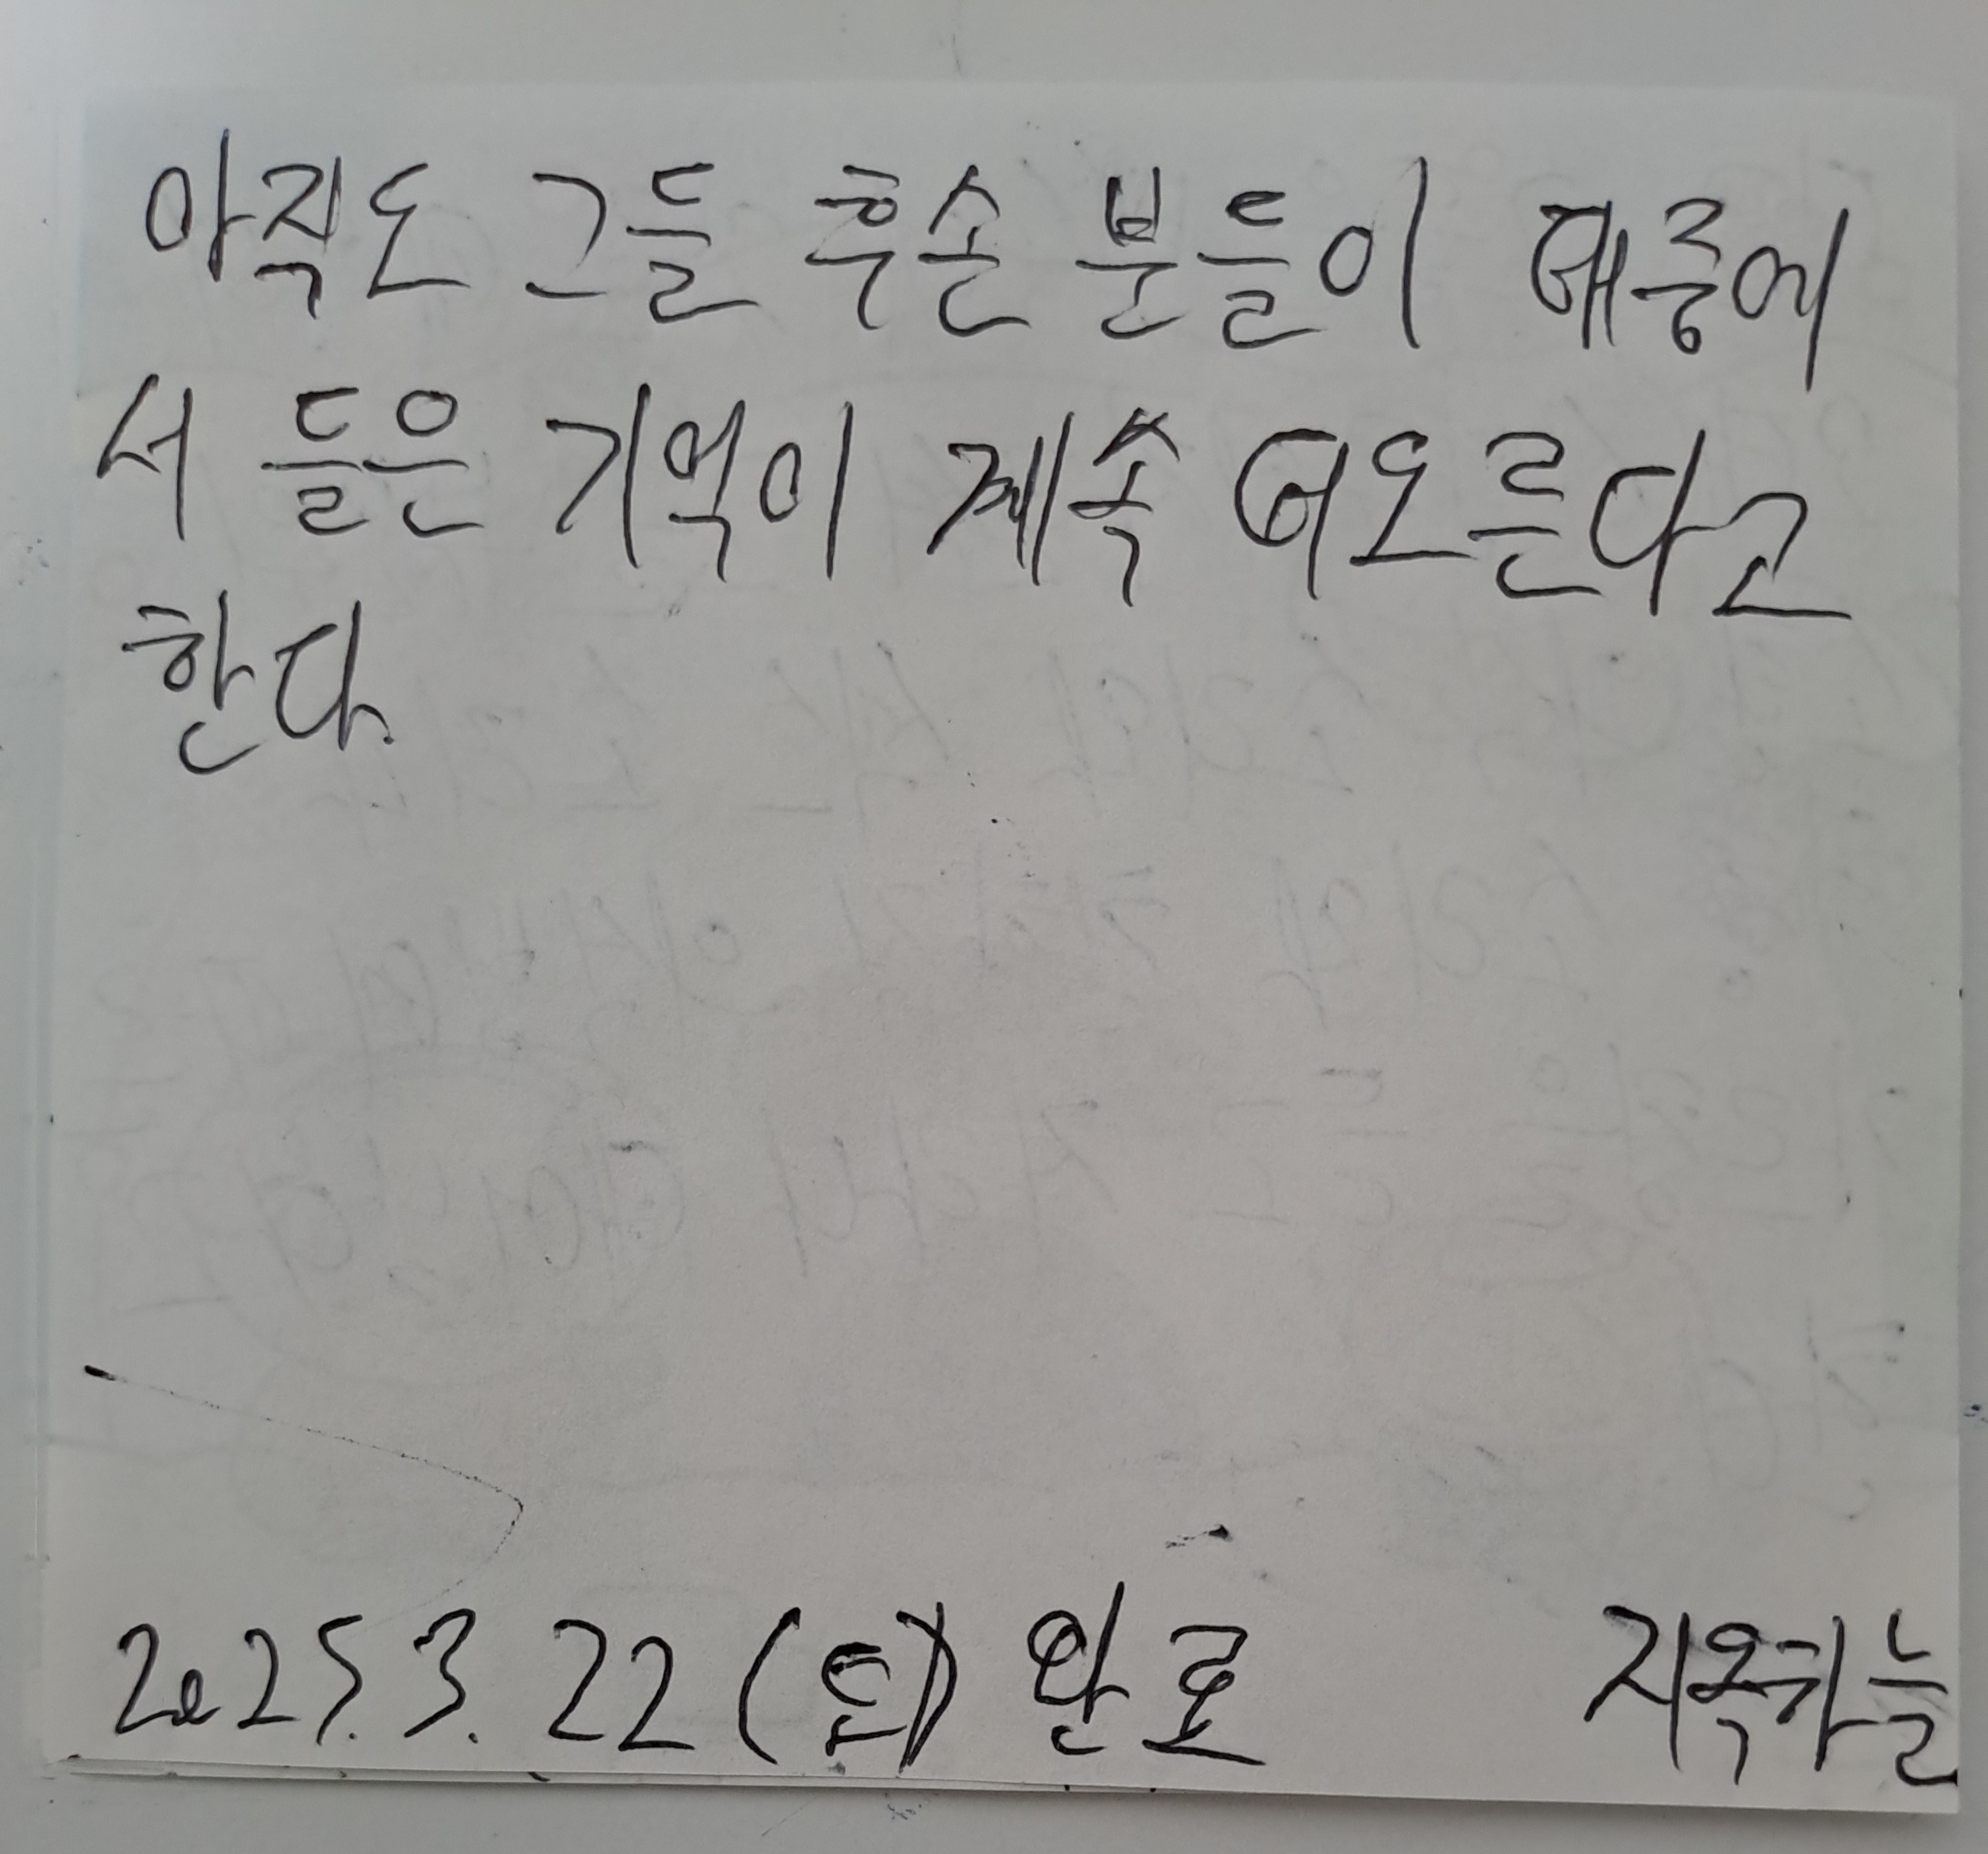 아직도 그들 후손 분들이 떼릉에
서 들은 기억이 계속 떠오른다고
한다.
2025. 3. 22 (토) 완료